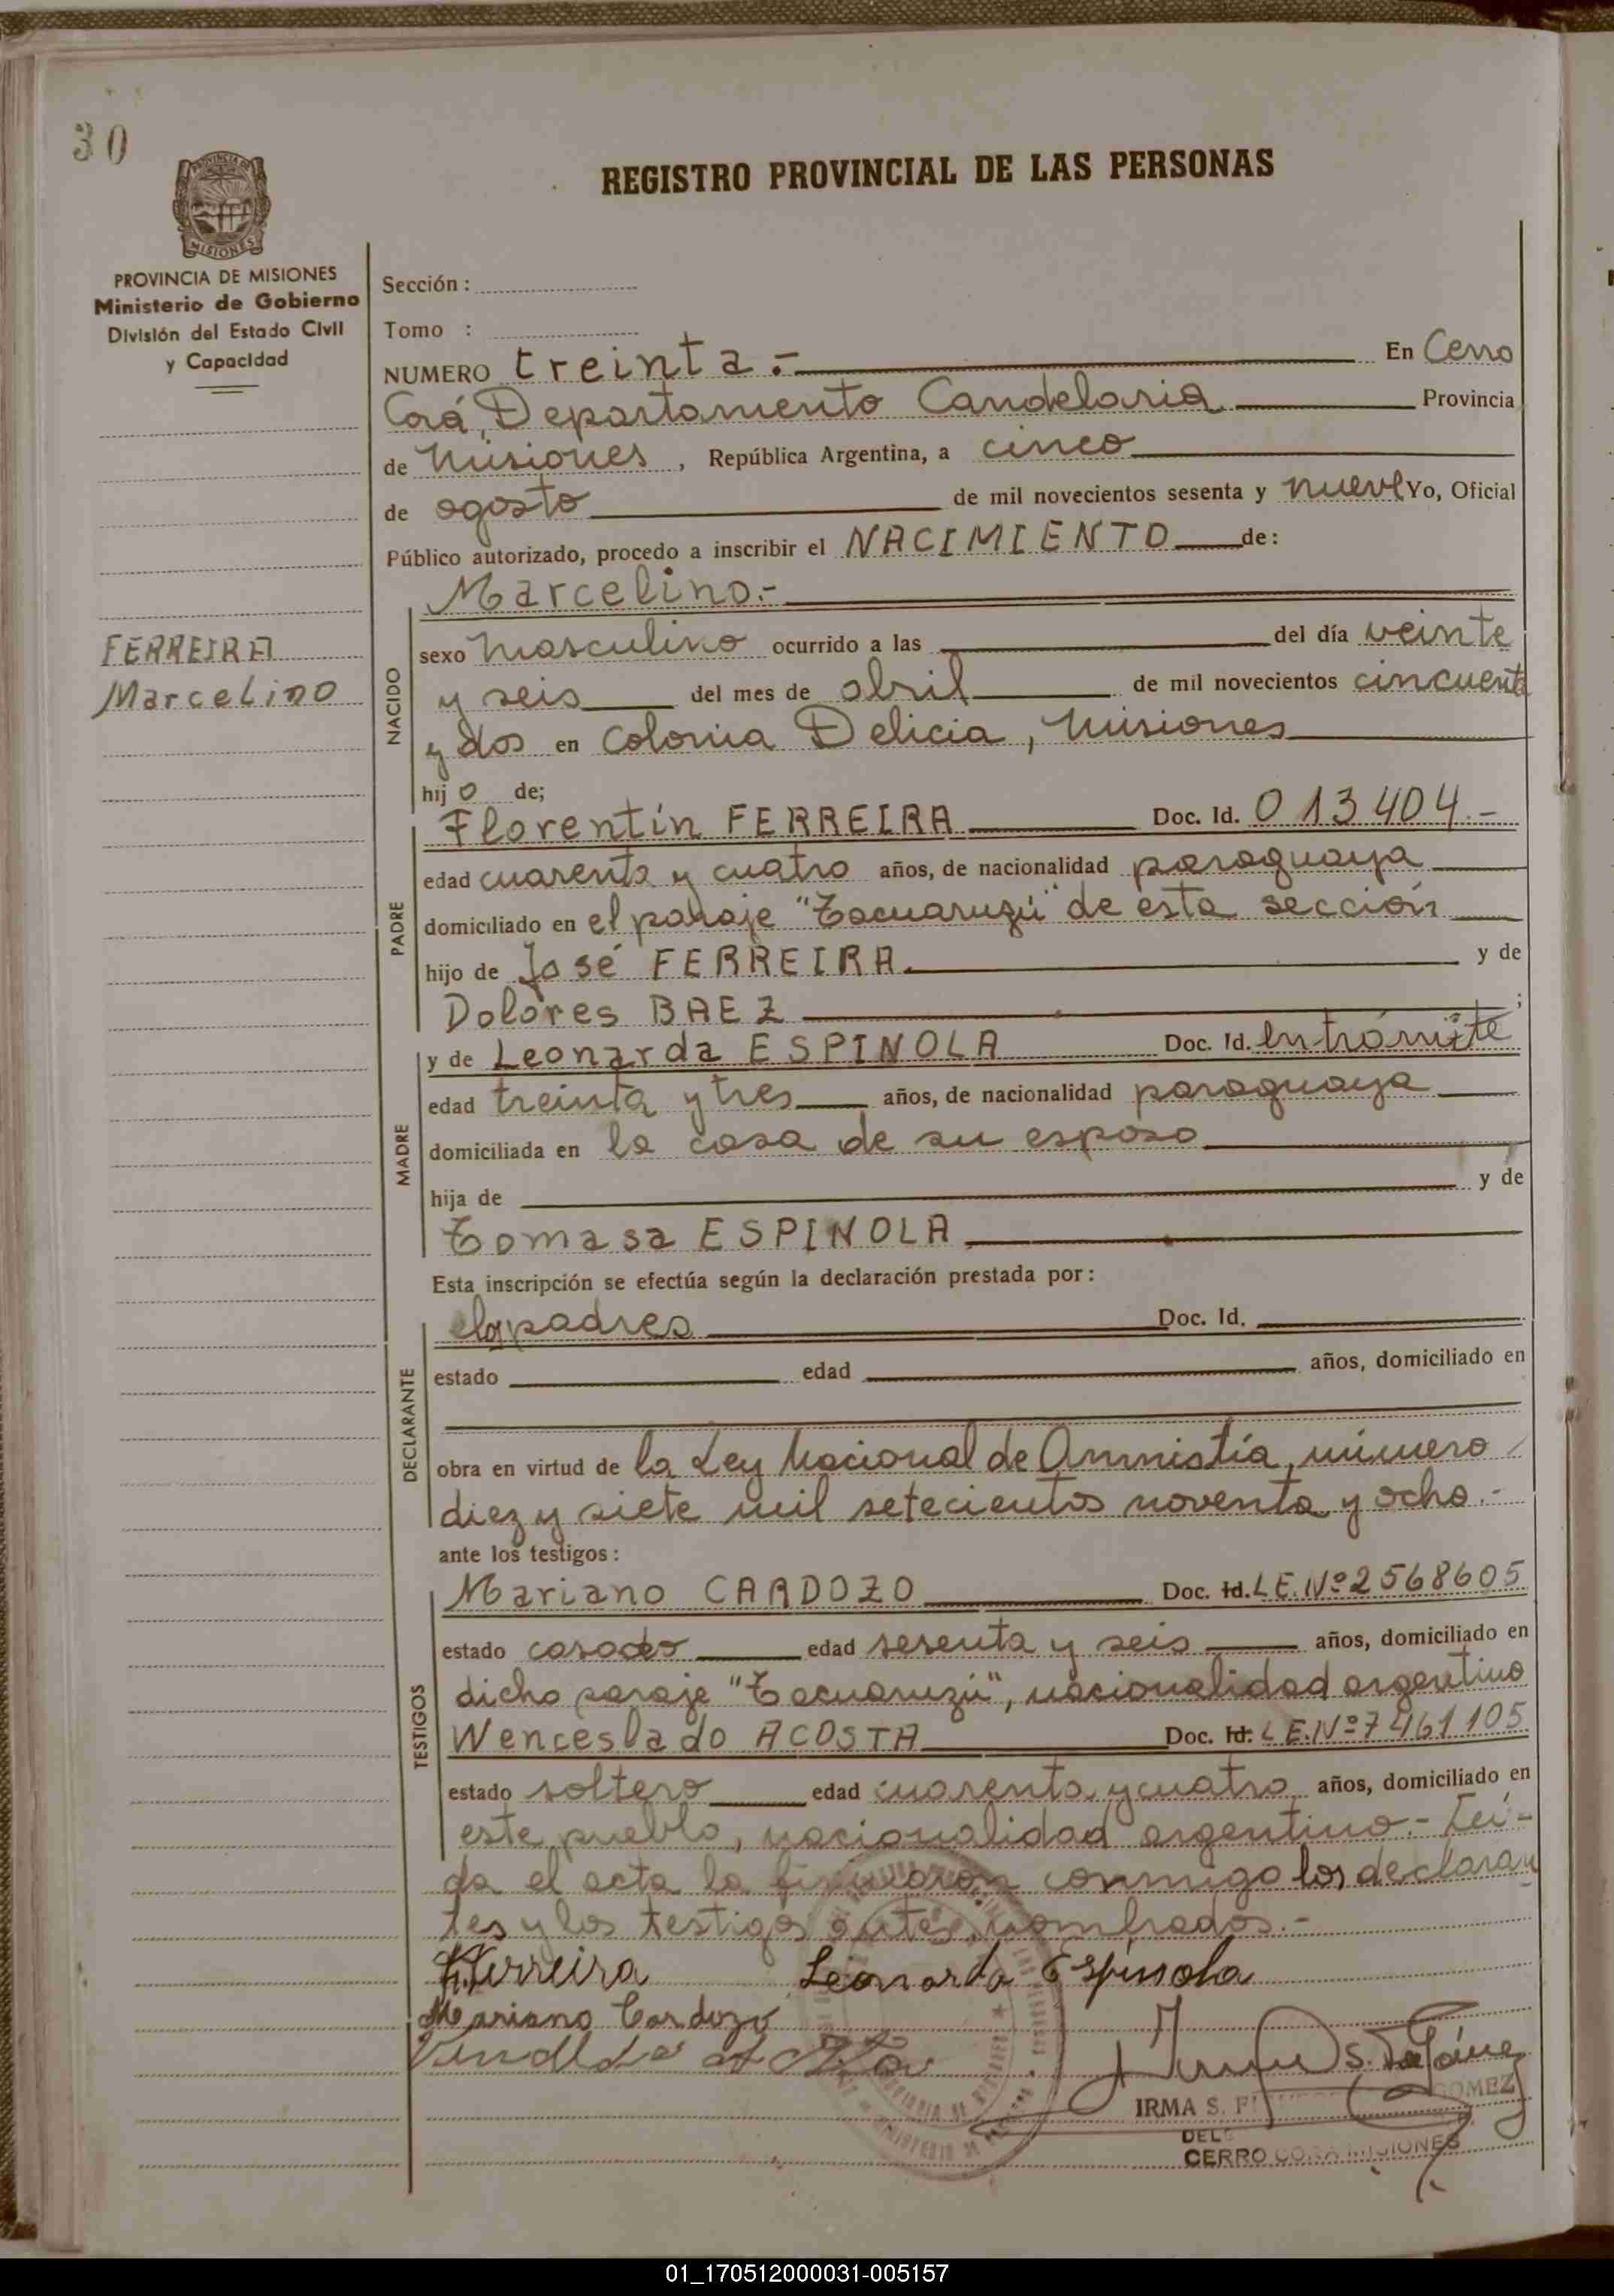 30
PROVINCIA DE
MISIONES
PROVINCIA DE MISIONES
Ministerio de Gobierno
División del Estado Civil
y Capacidad
REGISTRO PROVINCIAL DE LAS PERSONAS
Sección :
Tomo :
NUMERO treinta.- En Cerro
Corá, Departamento Candelaria Provincia
de Misiones, República Argentina, a cinco
de agosto de mil novecientos sesenta y nueve Yo, Oficial
Público autorizado, procedo a inscribir el NACIMIENTO de:
Marcelino.-
FERREIRA
Marcelino
NACIDO
sexo masculino ocurrido a las del día veinte
y seis del mes de abril de mil novecientos cincuenta
y dos en Colonia Delicia, Misiones
hijo de;
PADRE
Florentín FERREIRA Doc. Id. 013404.-
edad cuarenta y cuatro años, de nacionalidad paraguaya
domiciliado en el paraje "Tacuaruzú" de esta sección
hijo de José FERREIRA y de
Dolores BAEZ ;
MADRE
y de Leonarda ESPINOLA Doc. Id. En trámite
edad treinta y tres años, de nacionalidad paraguaya
domiciliada en la casa de su esposo
hija de y de
Tomasa ESPINOLA
Esta inscripción se efectúa según la declaración prestada por :
DECLARANTE
los padres Doc. Id.
estado edad años, domiciliado en
obra en virtud de la Ley Nacional de Amnistía, número
diez y siete mil setecientos noventa y ocho.-
ante los testigos :
TESTIGOS
Mariano CARDOZO Doc. Id. L.E. Nº 2568605
estado casado edad sesenta y seis años, domiciliado en
dicho paraje "Tacuaruzú", nacionalidad argentino
Wenceslado ACOSTA Doc. Id. L.E. Nº 7461105
estado soltero edad cuarenta y cuatro años, domiciliado en
este pueblo, nacionalidad argentino.- Leí-
da el acta la firmaron conmigo los declaran
tes y los testigos antes nombrados.-
F. Ferreira Leonarda Espinola
Mariano Cardozo
IRMA S. GOMEZ
CERRO CORA MISIONES
01_170512000031-005157